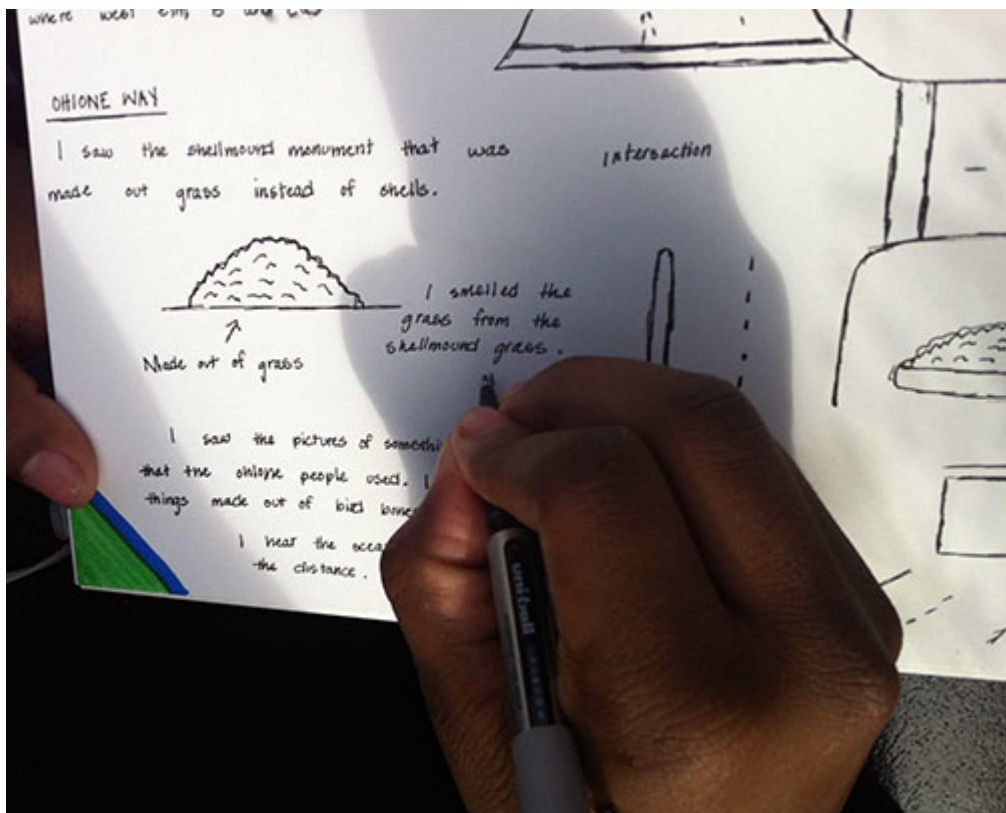 where west elm
OHLONE WAY
I saw the shellmound monument that was
made out grass instead of shells.
Intersection
I smelled the
grass from the
shellmound grass.
Made out of grass
I saw the pictures of
that the ohlone people used. I
things made out of bird bone
I hear the
the distance.
uniball